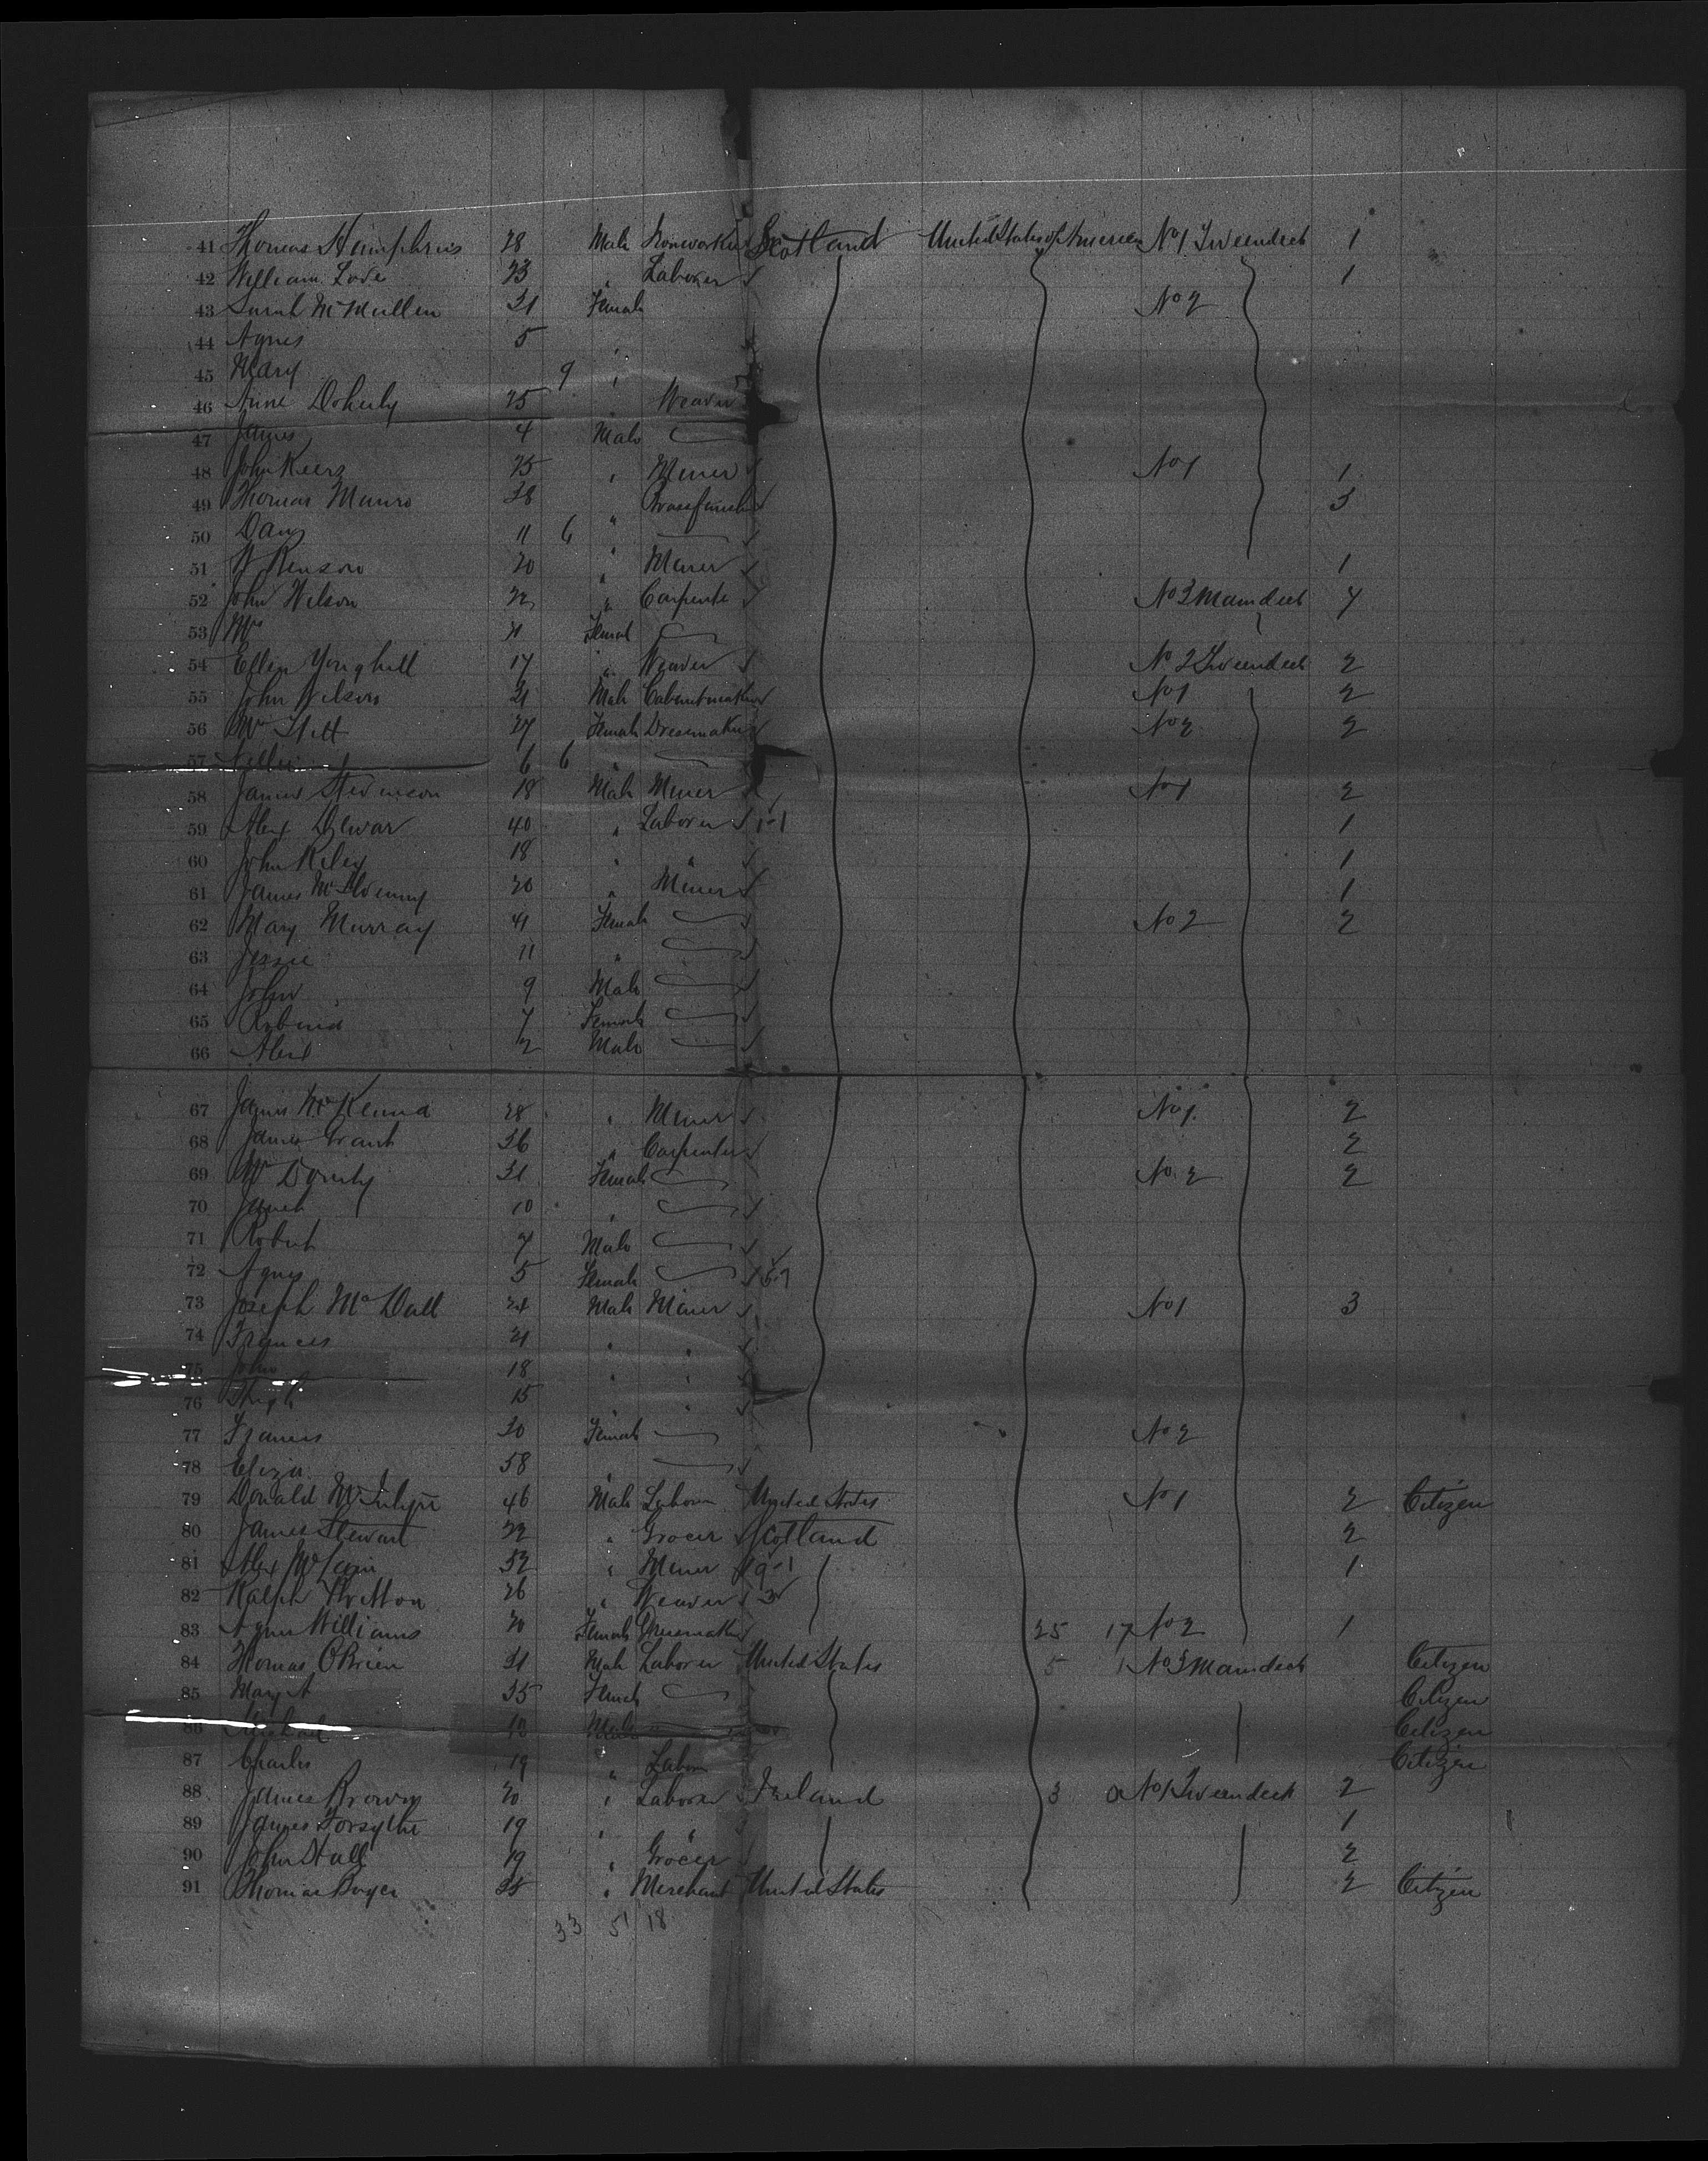 41 Thomas Humphris 28 Male Ironworker Scotland United States of America No 1 Tweendeck 1
42 William Love 23 " Laborer 1
43 Sarah McMullen 31 Female No 2
44 Agnes 5 "
45 Mary 9 "
46 Anne Doherty 25 " Weaver
47 James 4 Male
48 John Keerz 25 " Miner No 1 1
49 Thomas Munro 38 Brassfinish 3
50 Dan 11 6 "
51 W Renson 20 " Miner 1
52 John Wilson 22 " Carpente No 3 Maindeck 4
53 Mrs 21 Femal
54 Ellen Yonghill 17 " Weaver No 2 Tweendeck 2
55 John Wilson 31 Male Cabinetmaker No 1 2
56 Mrs Stitt 27 Female Dressmaker No 2 2
57 Nellie 6 6 "
58 James Stevenson 18 Male Miner No 1 2
59 Alex Dewar 40 " Laborer 1-1 1
60 John Riley 18 " " 1
61 James 20 " Miner 1
62 Mary Murray 41 Female No 2 2
63 Jessie 11 "
64 John 9 Male
65 Robina 7 Female
66 Alex 2 Male
67 James McKenna 28 " Miner No 1 2
68 James Grant 36 " Carpenter 2
69 31 Female No 2 2
70 Janet 10 "
71 Robert 7 Male
72 Agnes 5 Female
73 Joseph McDall 24 Male Miner No 1 3
74 Frances 21 " "
75 John 18 " "
76 Hugh 15 " "
77 Frances 30 Female No 2
78 Eliza 58 "
79 Donald McIntyre 46 Male Laborer United States No 1 2 Citizen
80 James Stewart 22 " Grocer Scotland 2
81 Alex McCain 52 " Miner 9-1 1
82 Ralph Britton 26 " Weaver
83 Agnes Williams 20 Female Dressmaker 25 17 No 2 1
84 Thomas OBrien 31 Male Laborer United States 5 1 No 3 Maindeck Citizen
85 Mary A 35 Female Citizen
86 Michael 10 Male Citizen
87 Charles 19 " Labor Citizen
88 James Brown 20 " Laborer Ireland 3 0 No 1 Tweendeck 2
89 James Forsythe 19 " " 1
90 John Hall 19 " Grocer 2
91 Thomas Boyer 35 " Merchant United States 2 Citizen
33 51 18